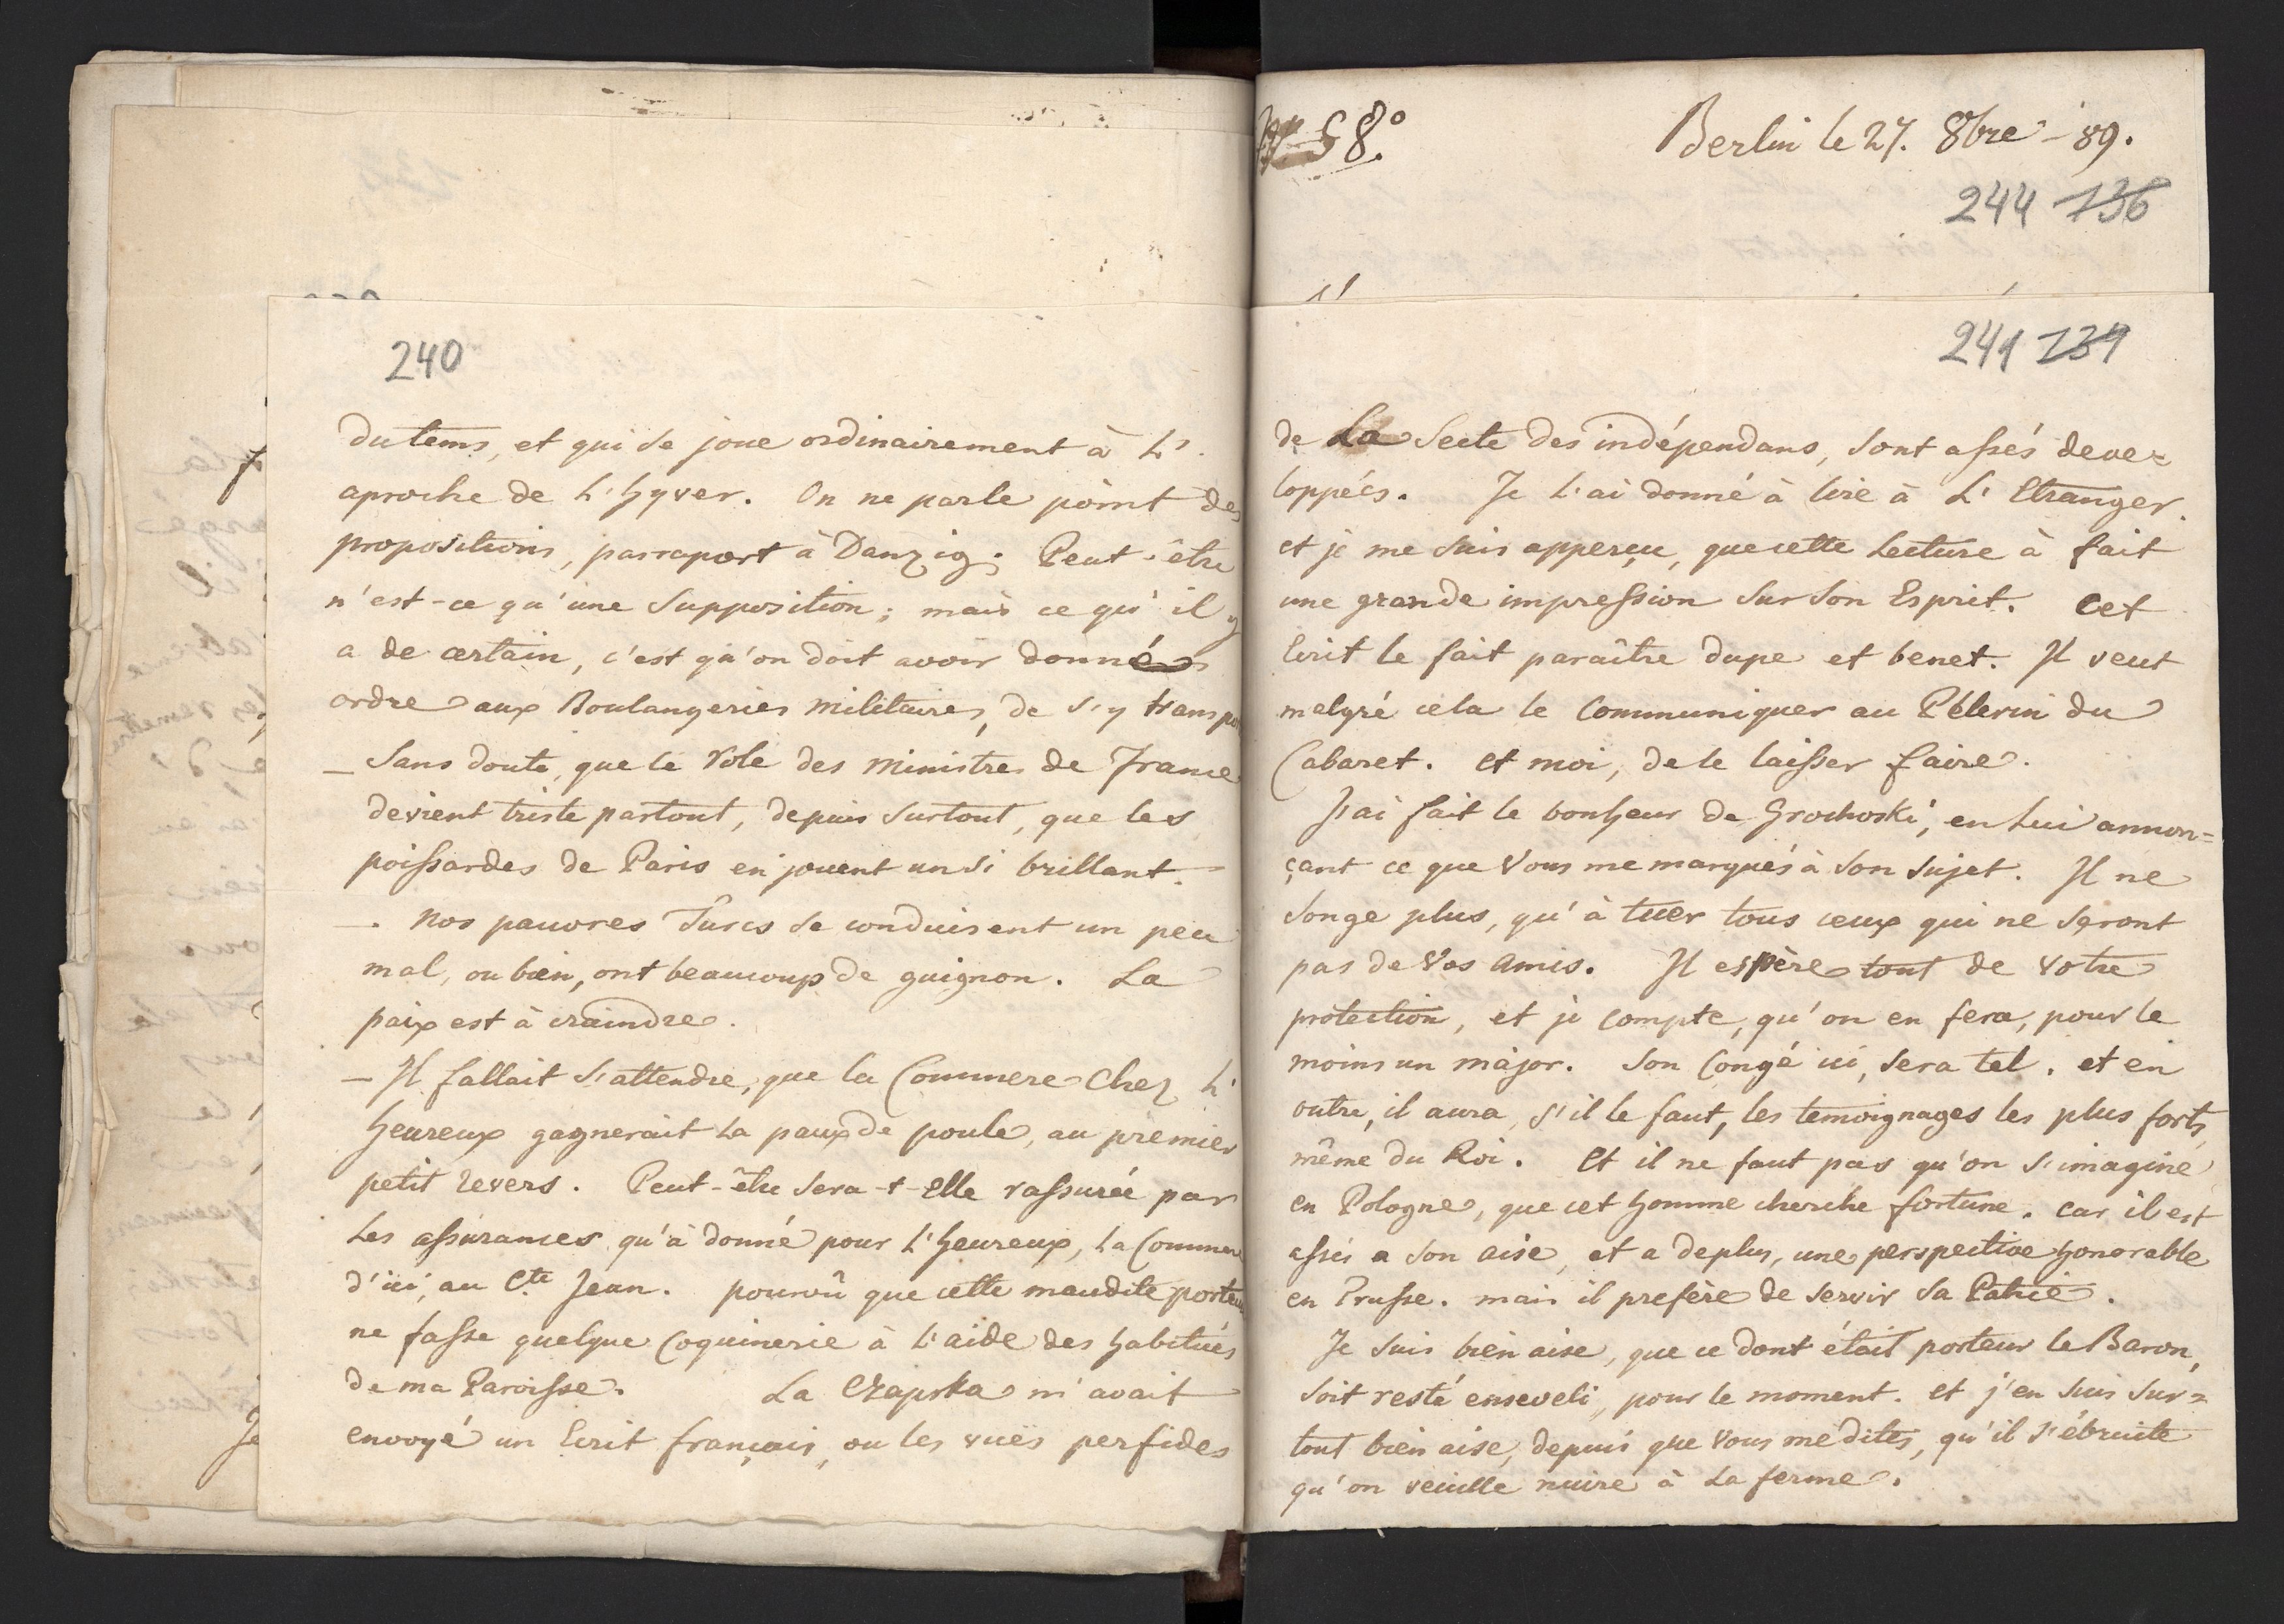 240
du tems, et qui se joue ordinairement à L'
aproche de L'hyver. On ne parle point des
propositions, parraport à Danzig. Peut-être
n'est-ce qu'une Supposition; mais ce qu'il y
a de certain, c'est qu'on doit avoir donné
ordre aux Boulangeries militaires, de s'y transpor
– Sans doute, que le role des ministres de France
devient triste partout, depuis surtout, que les
poissardes de Paris en jouent un si brillant.
–. Nos pauvres Turcs se conduisent un peu
mal, ou bien, ont beaucoup de guignon. La
paix est à craindre.
– Il fallait s'attendre, que la Commere chez L'
heureux gagnerait la paux de poule, au premier
petit revers. Peut-être sera-t-elle rassurée par
Les assurances qu'à donné pour L'heureux, la Commere
d'ici, au Cte Jean. pourvû que cette maudite porteu
ne fasse quelque Coquinerie à L'aide des habitués
de ma Paroisse. La Czapska m'avait
envoyé un Ecrit français, ou les vuës perfides
58°.
Berlin le 27. 8bre - 89.
244 136
241 134
de La Secte des indépendans, sont assés deve=
loppées. Je L'ai donné à lire à L'Etranger.
et je me suis apperçu, que cette Lecture à fait
une grande impression sur son Esprit. Cet
Ecrit le fait paraître dupe et benet. Il veut
malgré cela le Communiquer au Pélerin du
Cabaret. et moi, de le laisser faire.
J'ai fait le bonheur de Grochoski, en Lui annon=
çant ce que Vous me marqués à son sujet. Il ne
songe plus, qu'à tuer tous ceux qui ne seront
pas de Vos amis. Il espère tout de votre
protection, et je compte, qu'on en fera, pour le
moins un major. Son Congé ici, sera tel. et en
outre, il aura, s'il le faut, les temoignages les plus forts,
même du Roi. Et il ne faut pas qu'on s'imagine
en Pologne, que cet homme cherche fortune. Car il est
assés a son aise, et a deplus, une perspective honorable
en Prusse. mais il prefère de servir sa Patrie.
Je suis bien aise, que ce dont était porteur le Baron,
soit resté enseveli, pour le moment. et j'en suis sur=
tout bien aise, depuis que Vous me dites, qu'il s'ébruite
qu'on veuille nuire à La ferme.